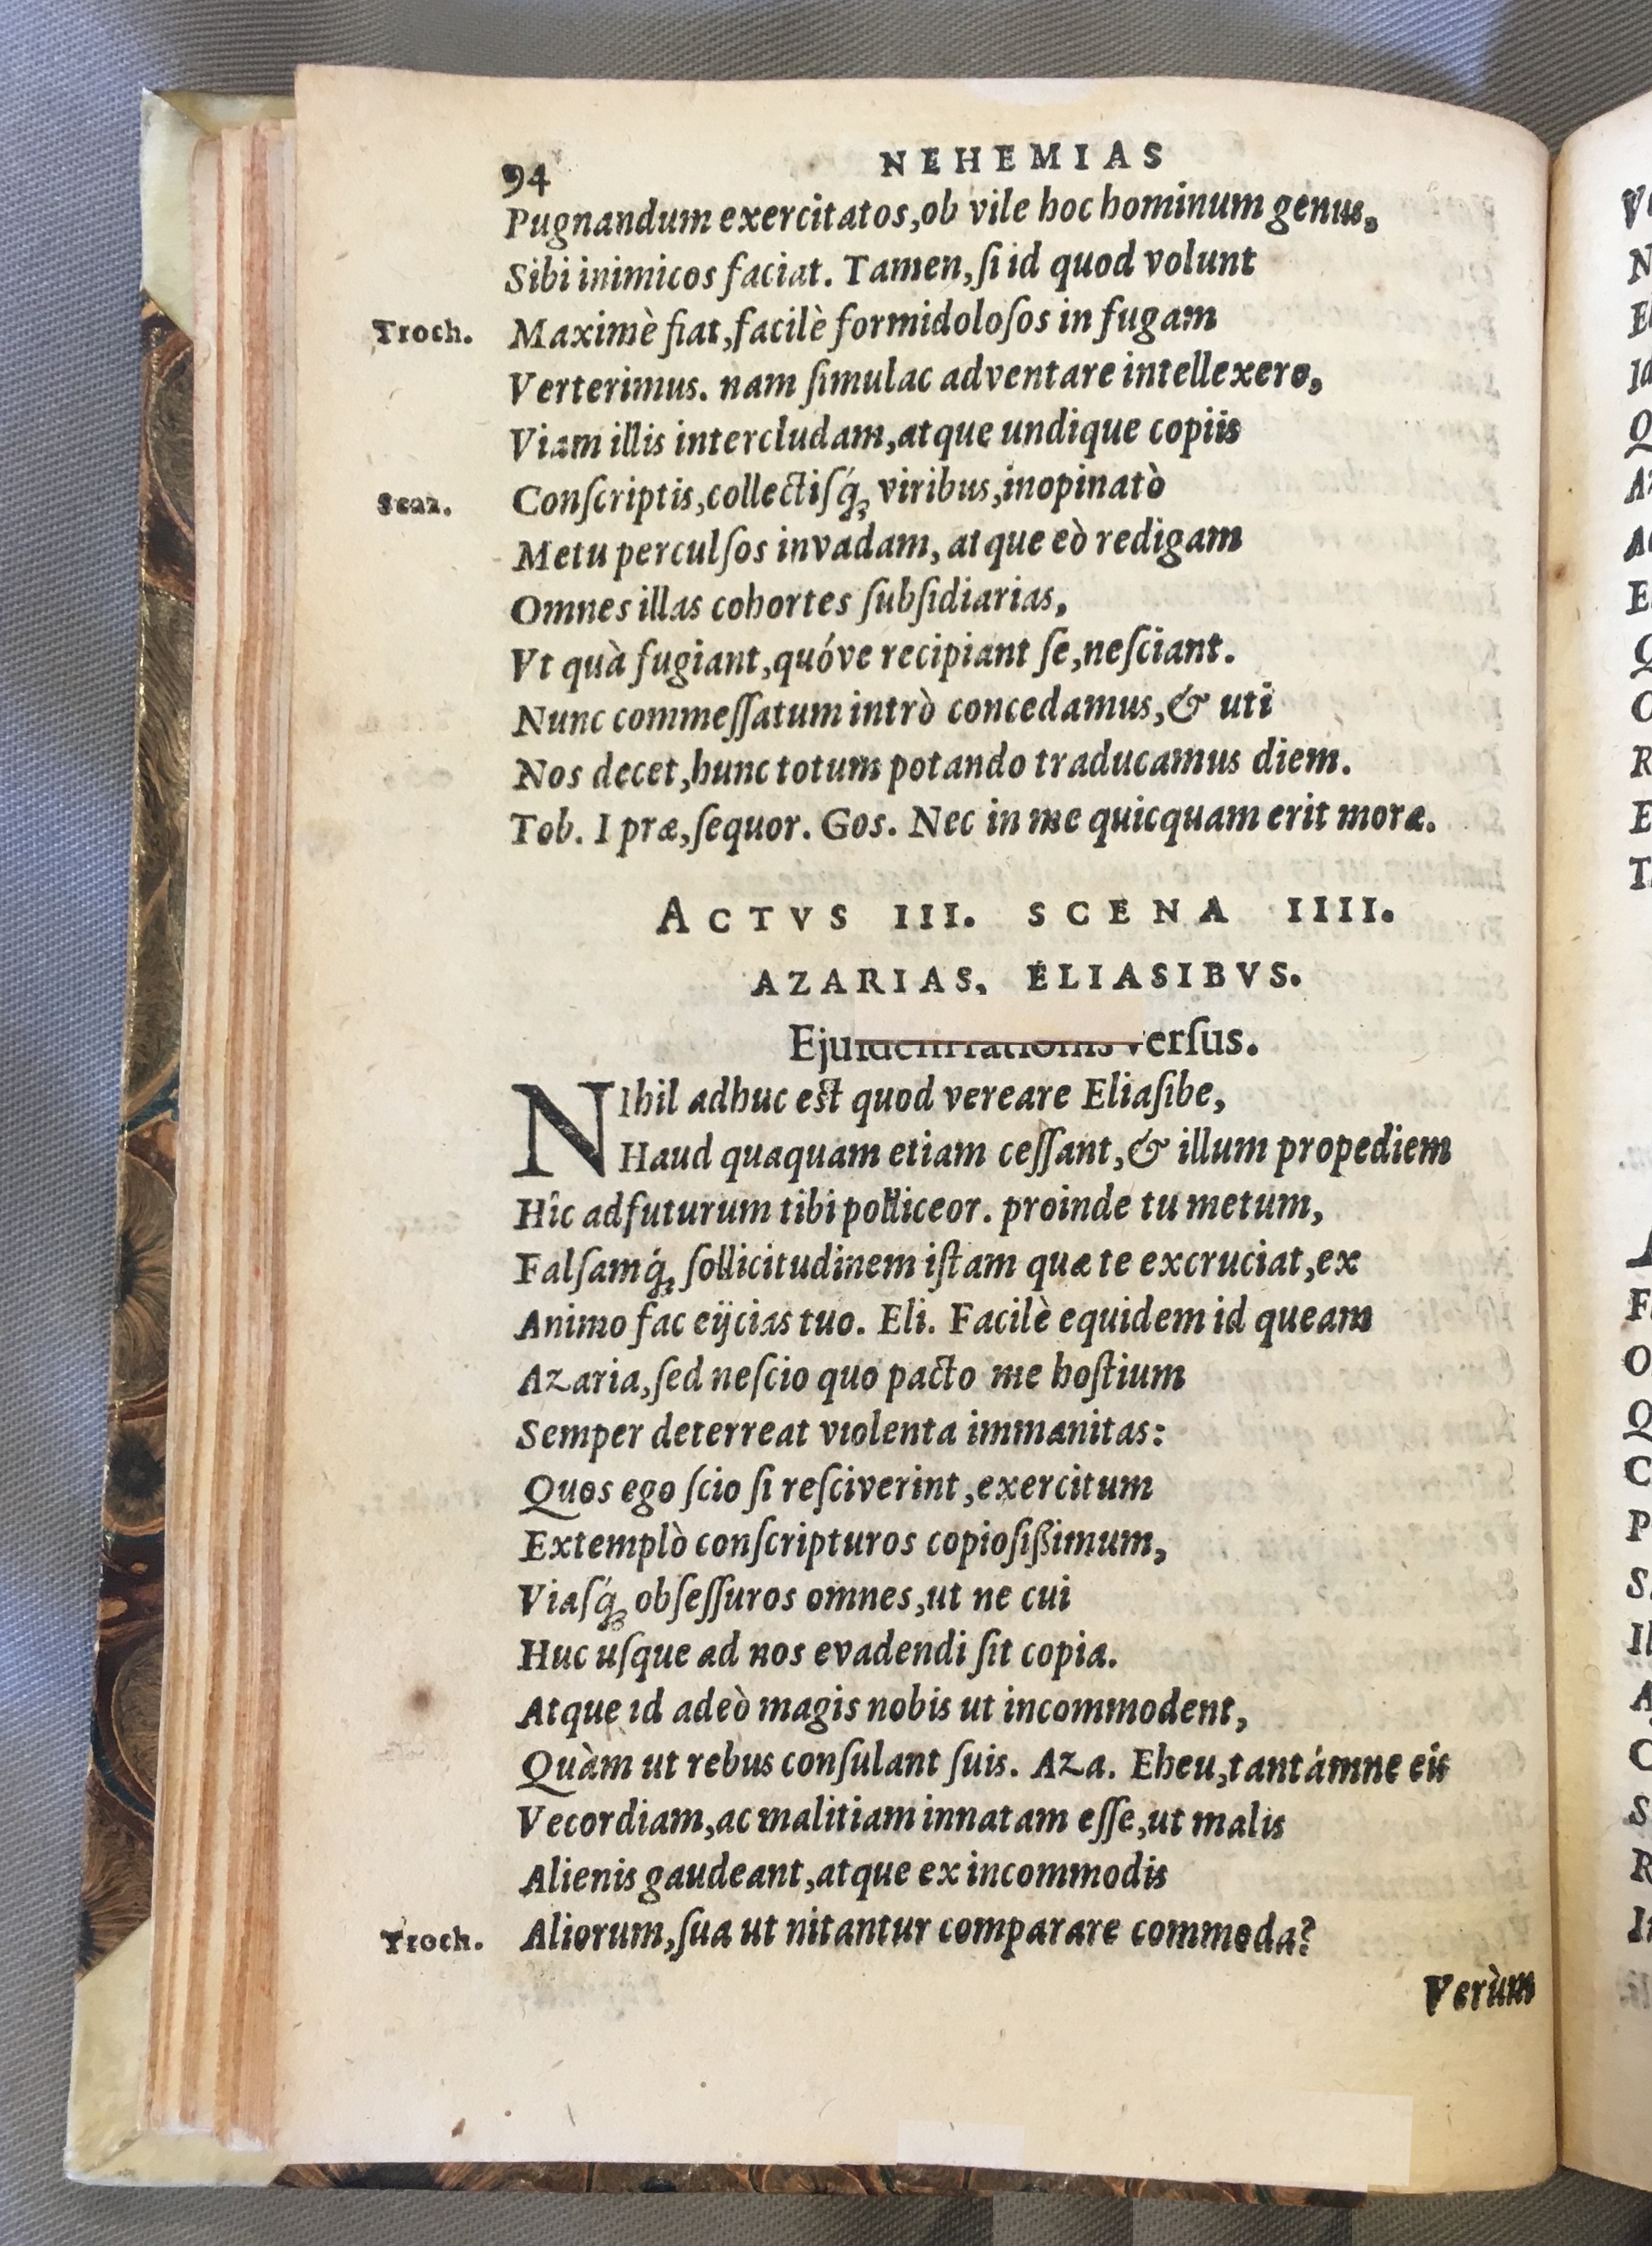 94 NEHEMIAS
Pugnandum exercitatos,ob vile hoc hominum genus,
Sibi inimicos faciat. Tamen,ſi id quod volunt
Troch. Maximè fiat,facilè formidoloſos in fugam
Verterimus. nam ſimulac adventare intellexero,
Viam illis intercludam,atque undique copiis
Scaz. Conſcriptis,collectiſq́; viribus,inopinatò
Metu perculſos invadam, atque eò redigam
Omnes illas cohortes ſubſidiarias,
Vt quà fugiant,quóve recipiant ſe,neſciant.
Nunc commeſſatum intrò concedamus,& uti
Nos decet,hunc totum potando traducamus diem.
Tob. I præ,ſequor. Gos. Nec in me quicquam erit moræ.
ACTVS III. SCENA IIII.
AZARIAS, ELIASIBVS.
verſus.
NIhil adhuc est quod vereare Eliaſibe,
Haud quaquam etiam ceſſant,& illum propediem
Hîc adfuturum tibi polliceor. proinde tu metum,
Falſamq́; ſollicitudinem iſtam quæ te excruciat,ex
Animo fac eijcias tuo. Eli. Facilè equidem id queam
Azaria,ſed neſcio quo pacto me hoſtium
Semper deterreat violenta immanitas:
Quos ego ſcio ſi reſciverint,exercitum
Extemplò conſcripturos copioſißimum,
Viaſq́; obſeſſuros omnes,ut ne cui
Huc uſque ad nos evadendi ſit copia.
Atque id adeò magis nobis ut incommodent,
Quàm ut rebus conſulant ſuis. Aza. Eheu,tantámne eis
Vecordiam,ac malitiam innatam eſſe,ut malis
Alienis gaudeant,atque ex incommodis
Troch. Aliorum,ſua ut nitantur comparare commoda?
Verùm